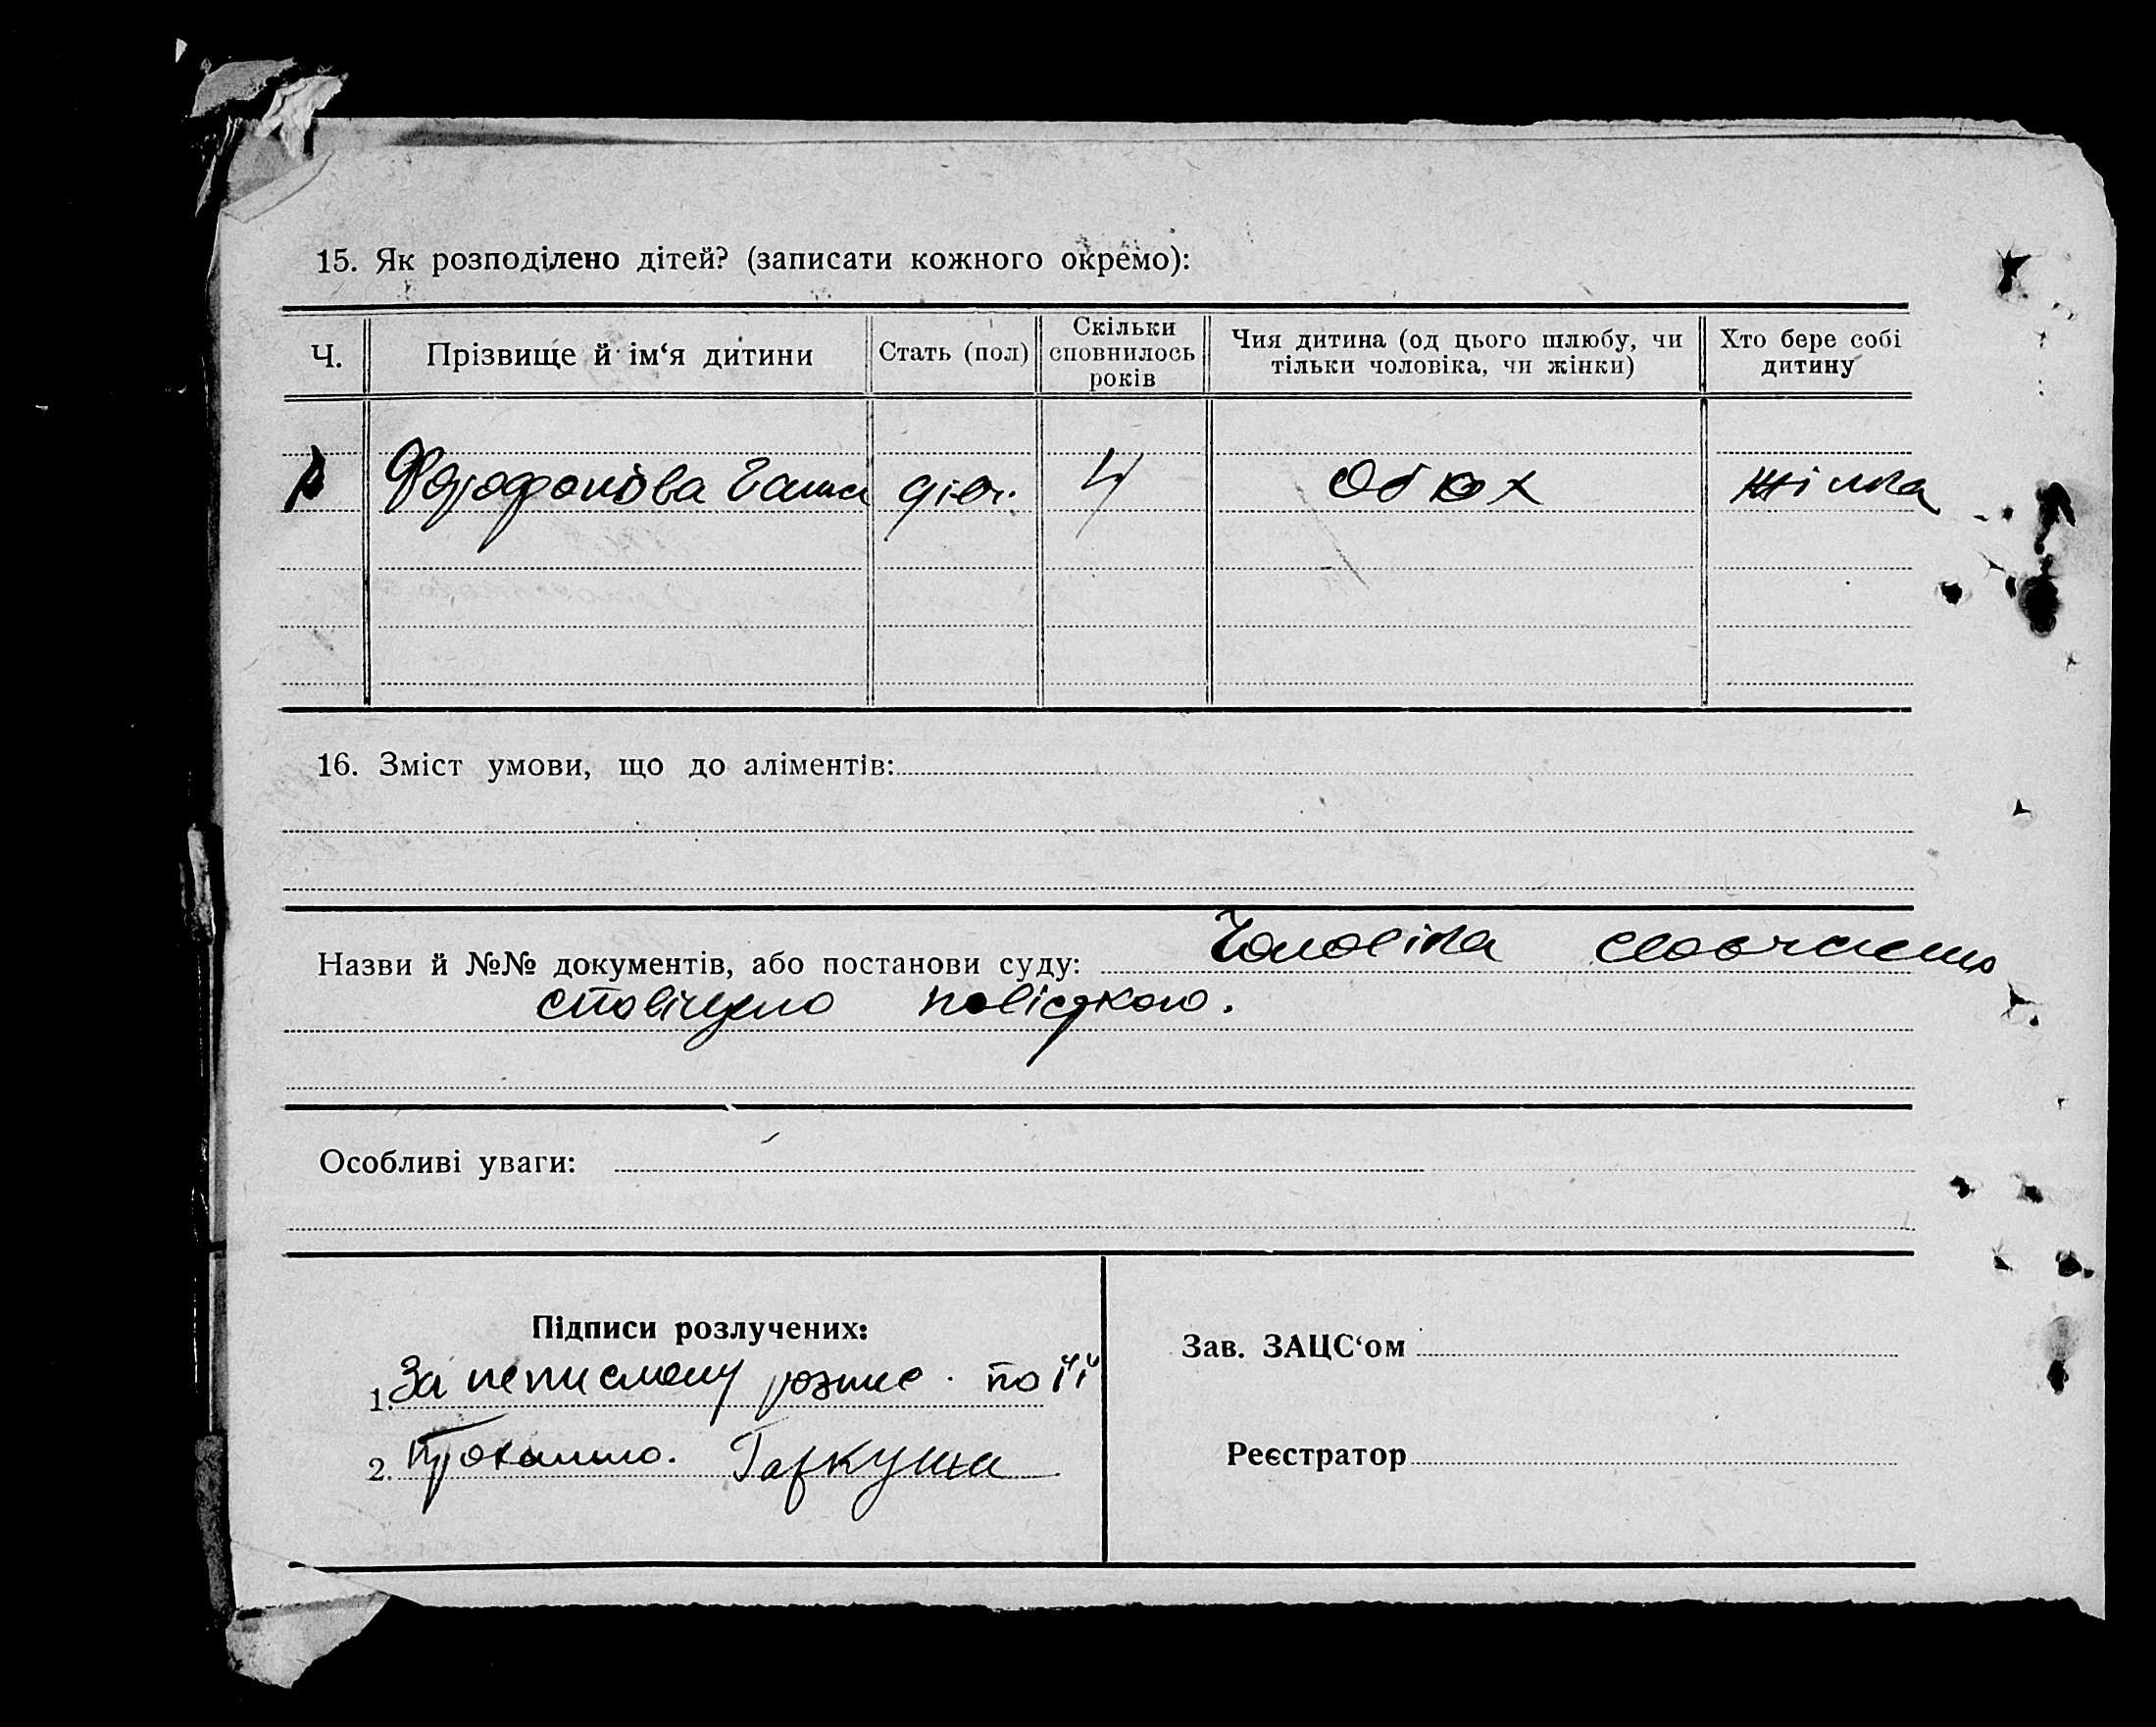 15. Як розподілено дітей? (записати кожного окремо):
Ч. Прізвище й ім‘я дитини Стать (пол) Скільки сповнилось років Чия дитина (од цього шлюбу, чи тільки чоловіка, чи жінки) Хто бере собі дитину
дівч. 4 Обох жінка
16. Зміст умови, що до аліментів:
Назви й №№ документів, або постанови суду: Чоловіка
повісткою.
Особливі уваги:
Підписи розлучених:
1. За неписьмену розпис. по її
2. Проханню. Гаркуша
Зав. ЗАЦС‘ом
Реєстратор